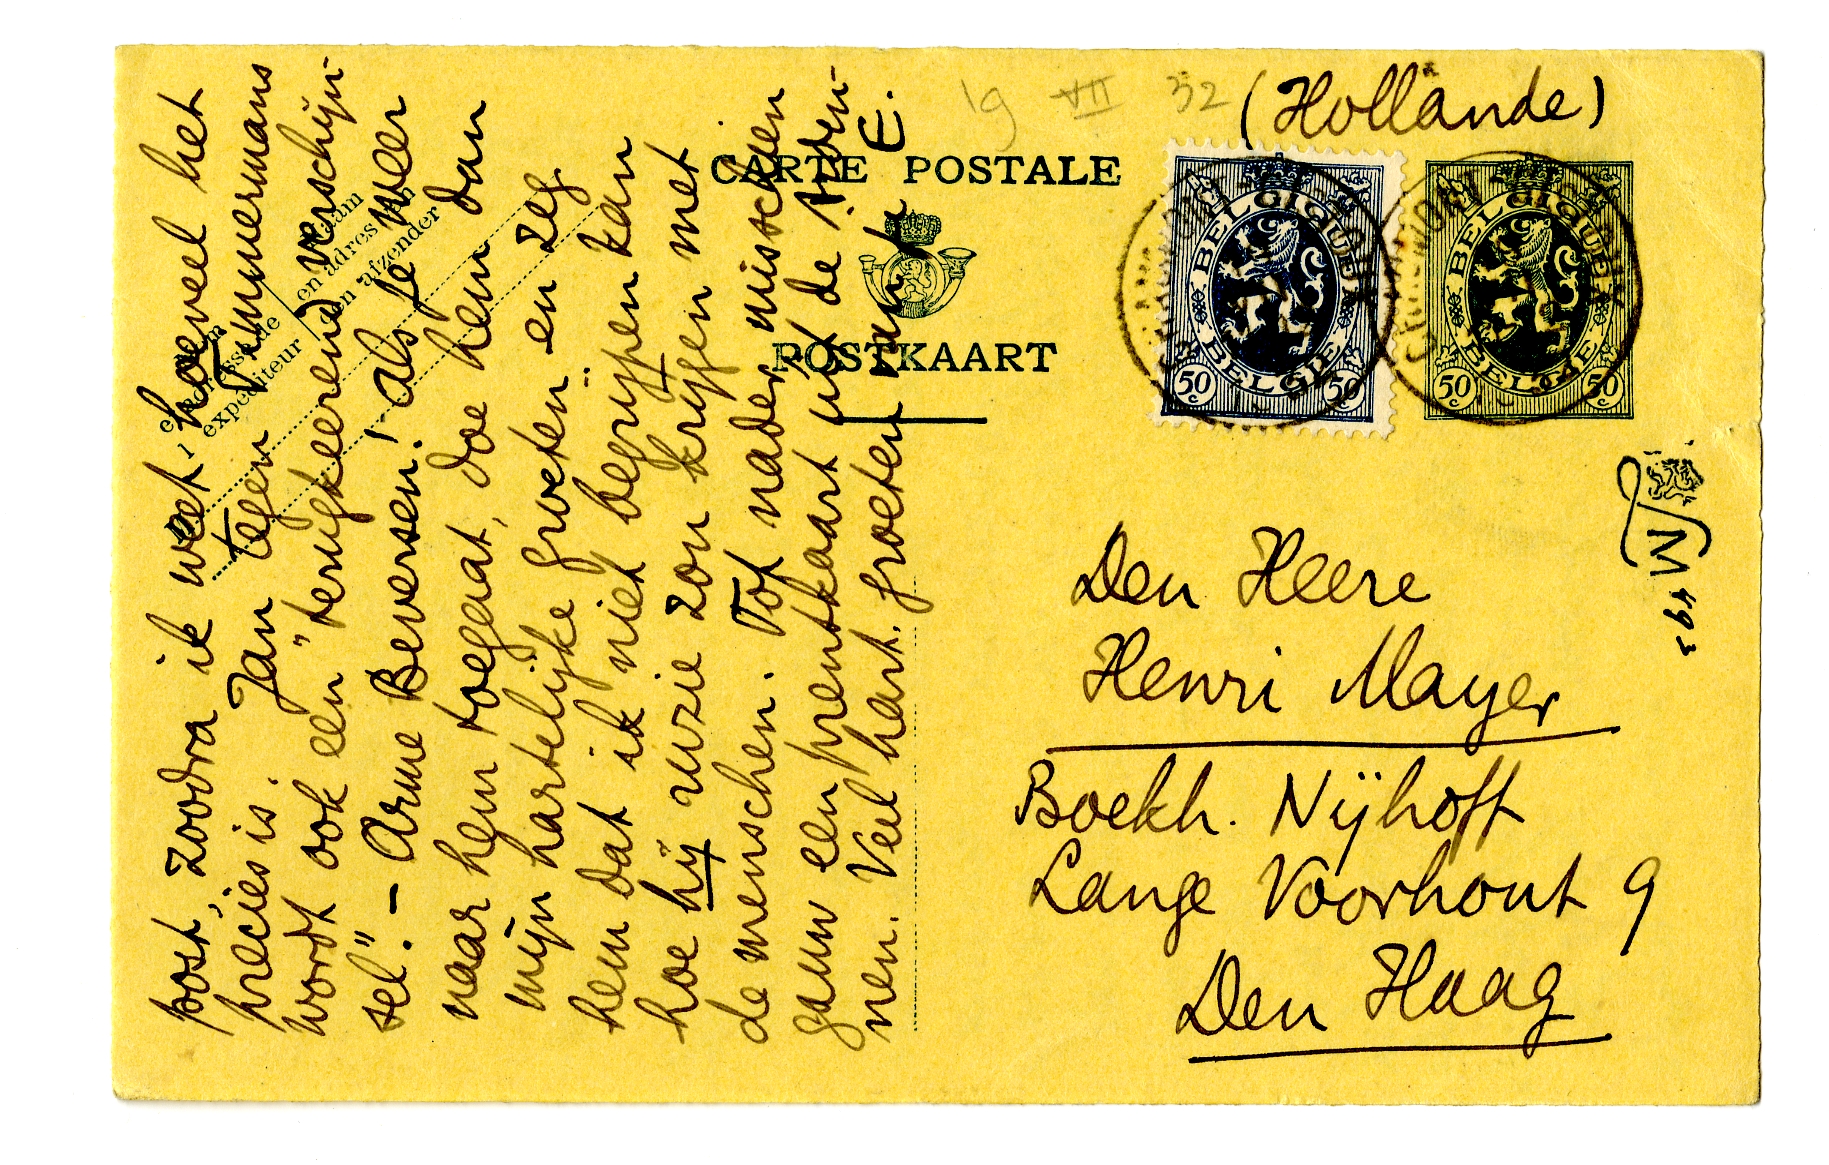 19 VII 32
(Hollande)
CARTE POSTALE
POSTKAART
BELGIQUE
BELGIE
50 c
50 c
BELGIQUE
BELGIE
50 c
50 c
Naam
en adres van
den afzender
Nom
et adresse de
expéditeur
post, zoodra ik weet, hoeveel het
precies is. Jan tegen Timmermans
wordt ook een "terugkeerend verschijn-
sel". – Arme Beversen! als je weer
naar hem toegaat, doe hem dan
mijn hartelijke groeten en zeg
hem dat ik niet begrypen kan
hoe hij ruzie zou krijgen met
de menschen. Tot nader, misschien
gauw een prentkaart uit de Arden-
nen. Veel hart. groeten van E.
Den Heere
Henri Mayer
Boekh. Nijhoff
Lange Voorhout 9
Den Haag
M 493